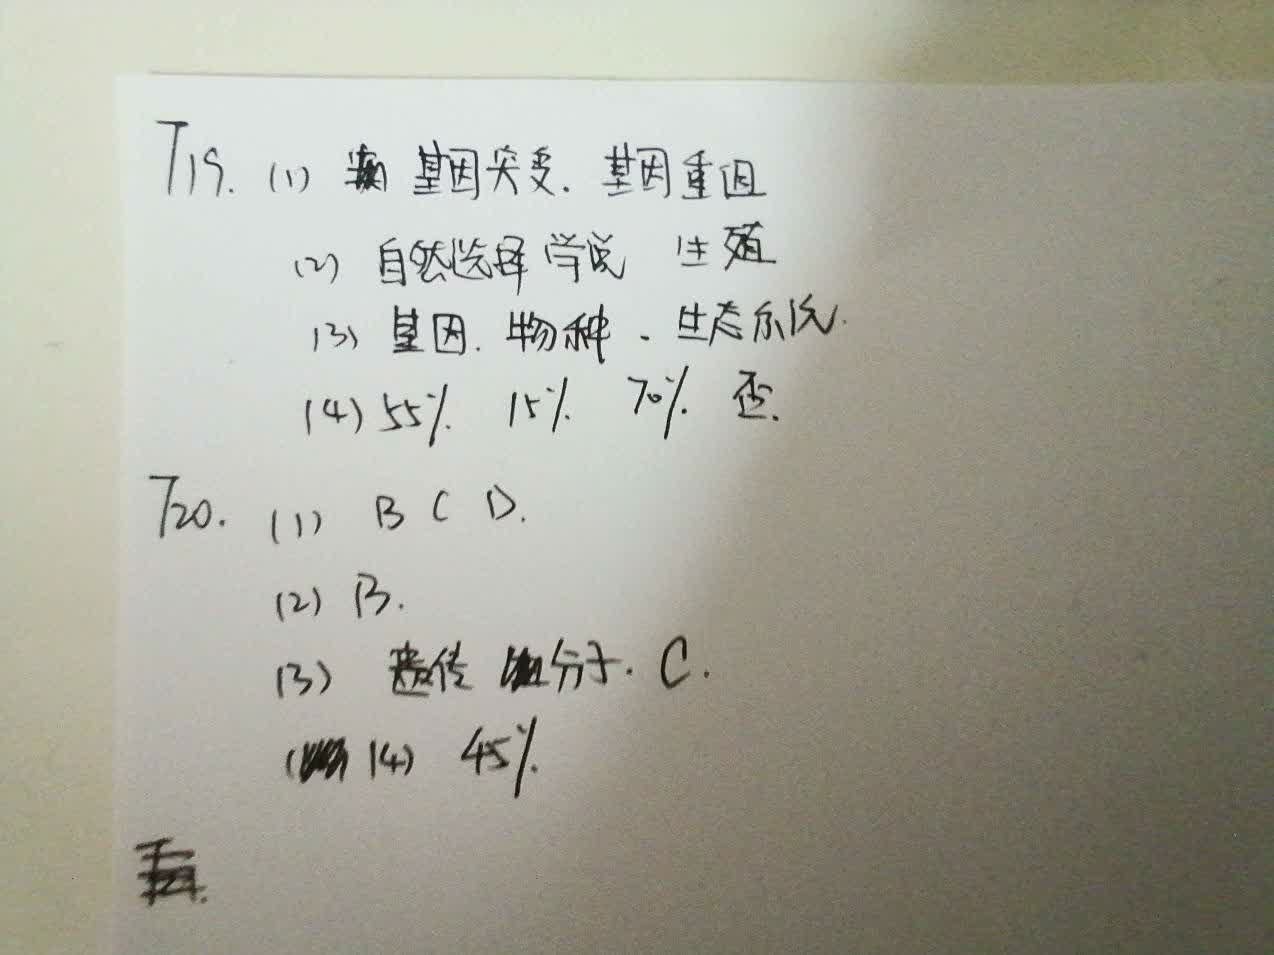 T19. (1) 基因突变. 基因重因
(2) 自然选择学说 生殖
(3) 基因. 物种、生态系统.
(4) 55% 15% 70% 否.
T20. (1) B C D.
(2) B.
(3) 遗传 分子. C.
(4) 45%